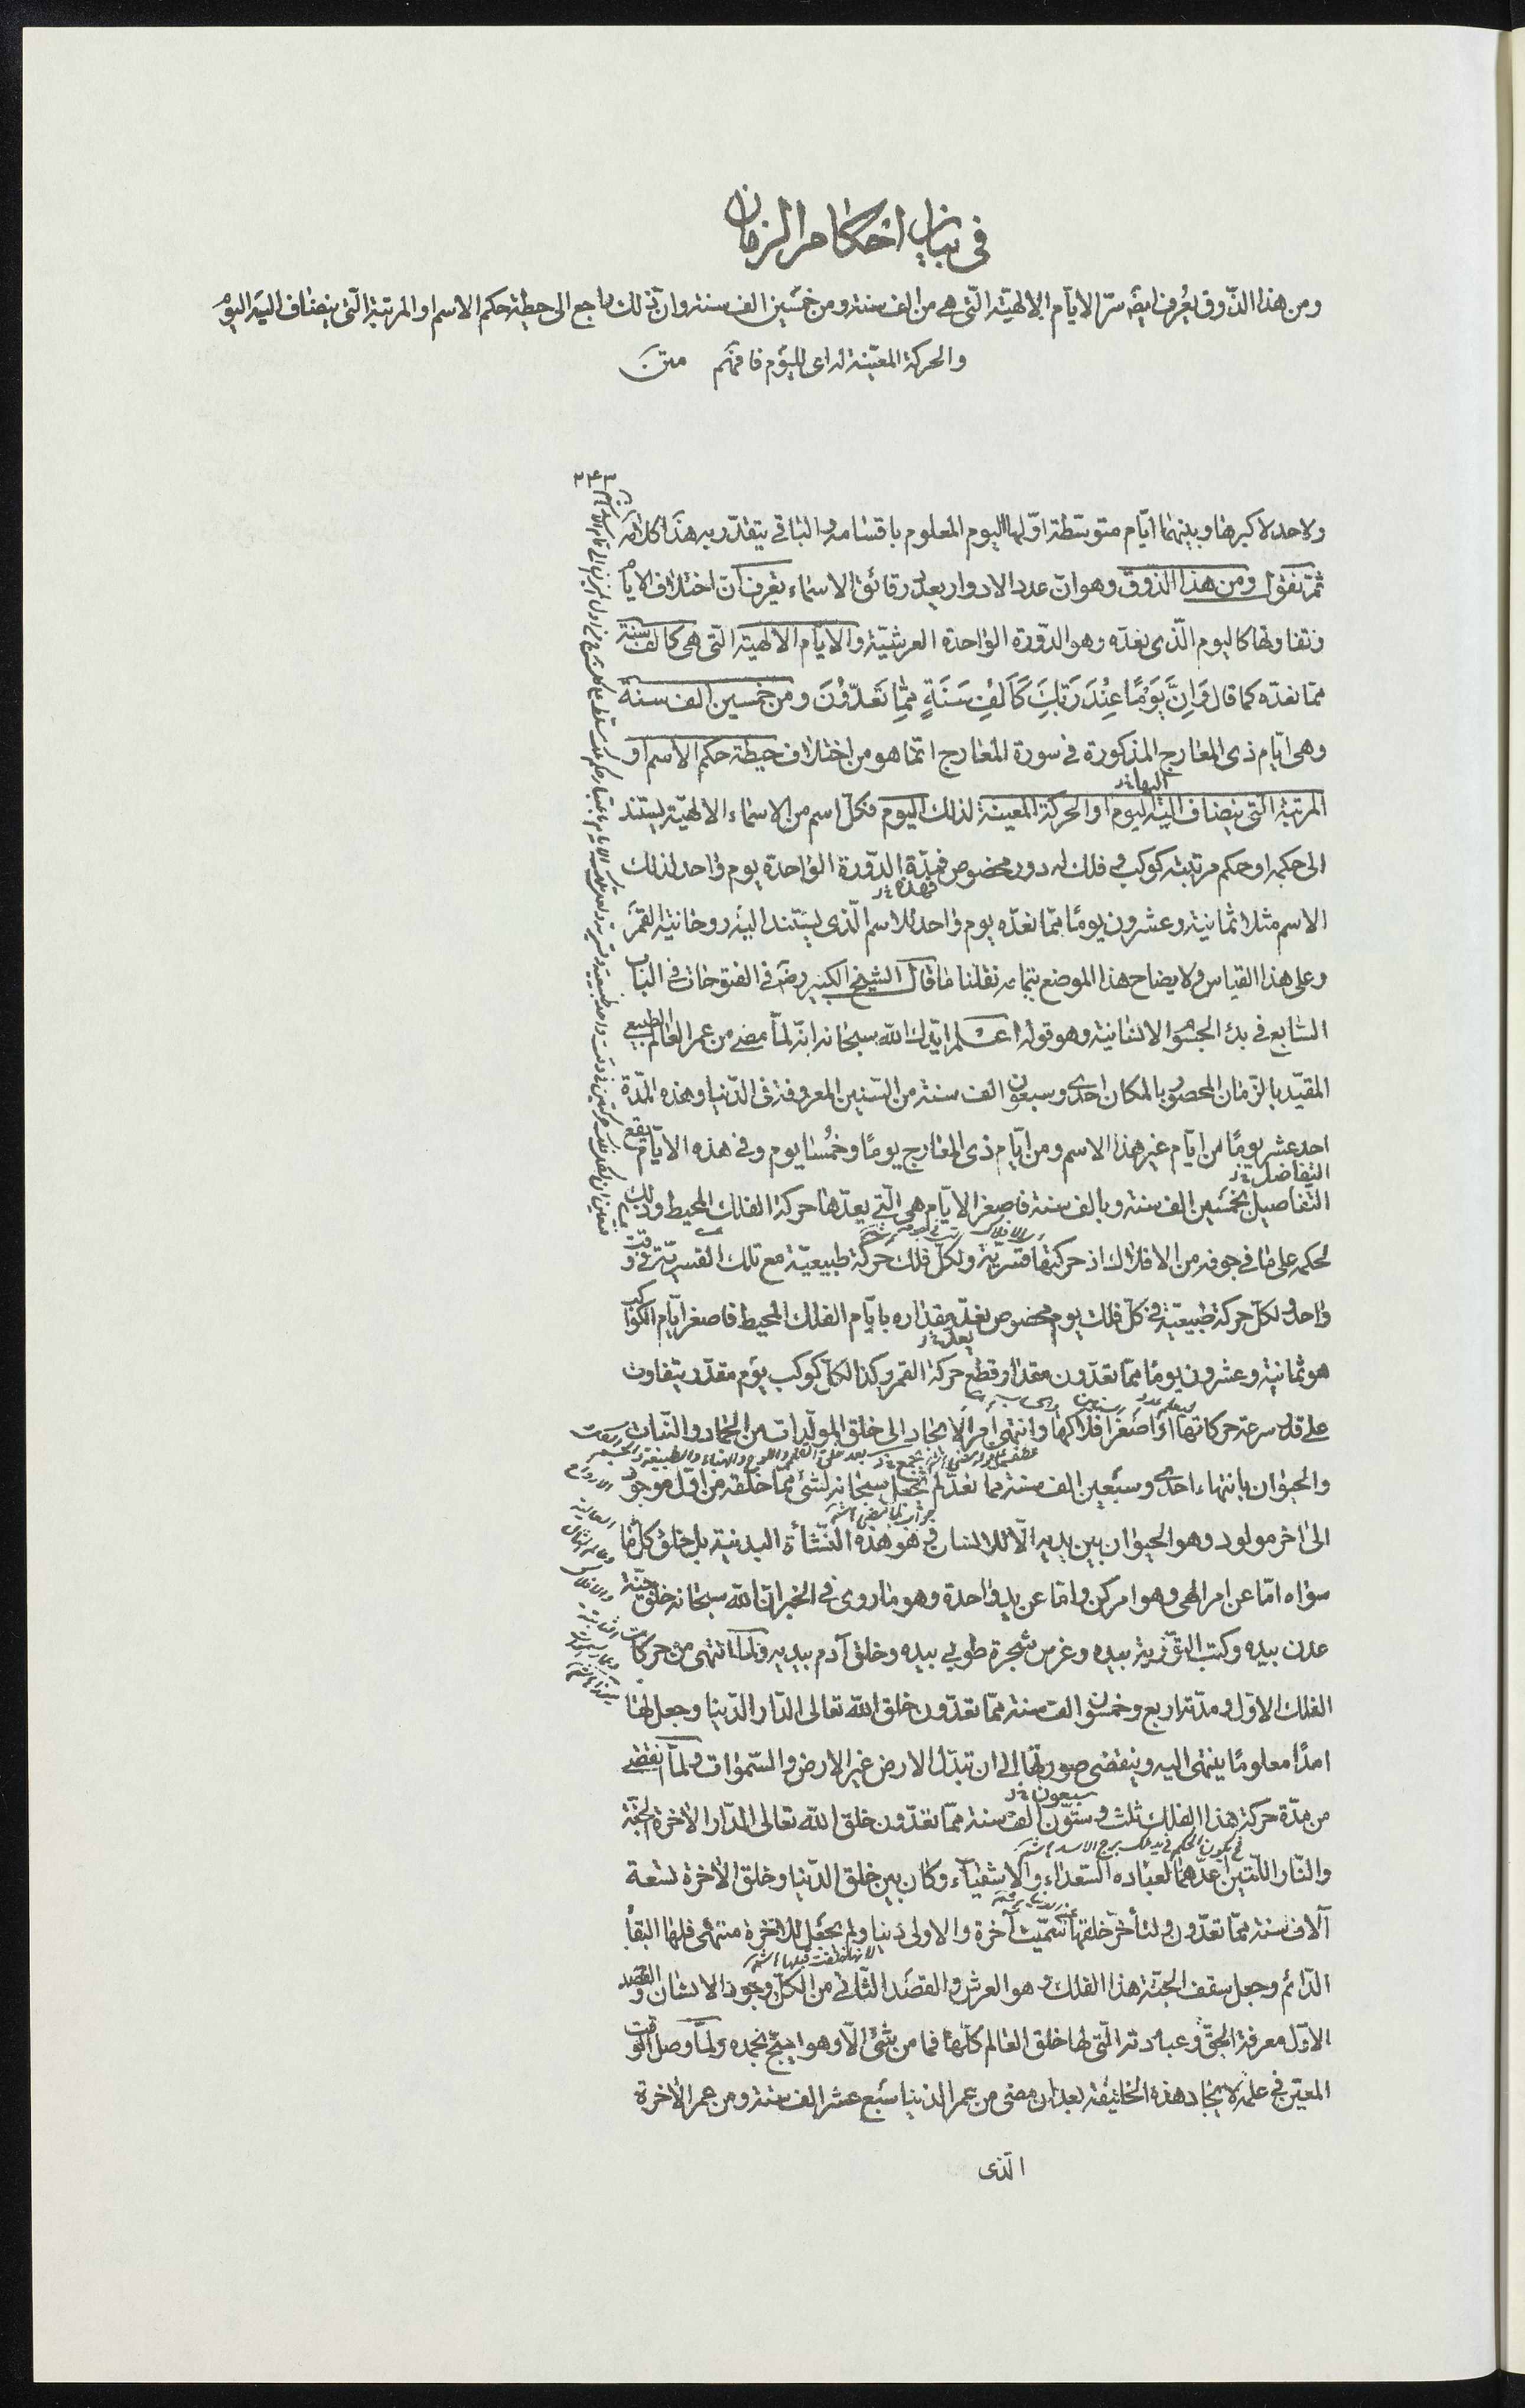 في بيان احكام الزمان
ومن هذا الذّوق يُعرف ايضًا سرّ الايام الالهيّة الّتي هي من الف سنة ومن خمسين الف سنة وان ذلك راجع الى حيطة حكم الاسم او المرتبة الّتي ينضاف اليه اليوم
والحركة المعيّنة له اى لليوم فافهم متن
٢٤٣
ولاحد لاكبرها وبينهما ايّام متوسّطة اوّلها اليوم المعلوم باقسامه والباقى يتقدّر به هذا كلامه
ثمّ نقول ومن هذا الذوق وهو انّ عدد الادوار بعدد رقائق الاسماء يعرف انّ اختلاف الايام
وتفاوتها كاليوم الّذى نعدّه وهو الدّورة الواحدة العرشيّة والايام الالهية التى هى كالف سنة
ممّا نعدّه كما قال وَاِنَّ يَوْمًا عِنْدَ رَبِّكَ كَاَلْفِ سَنَةٍ مِمَّا تَعُدُّوْنَ ومن خمسين الف سنة
وهى ايّام ذى المعارج المذكورة فى سورة المعارج انّما هو من اختلاف حيطة حكم الاسم او
اليها
المرتبة الّتى ينضاف اليه اليوم او الحركة المعينة لذلك اليوم فكلّ اسم من الاسماء الالهيّة يستند
الى حكمه او حكم مرتبته كوكب فى فلك له دور مخصوص فمدّة الدّورة الواحدة يوم واحد لذلك
فهذه
الاسم مثلا ثمانية وعشرون يومًا ممّا نعدّه يوم واحد للاسم الّذى يستند اليه روحانية القمر
وعلى هذا القياس ولايضاح هذا الموضع بتمامه نقلنا ما قال الشيخ الكبير رضه فى الفتوحات فى الباب
السّابع فى بدء الجسوم الانسانية وهو قوله اعلم ايّدك الله سبحانه انّه لمّا مضى من عمر العالم الطبيعى
المقيّد بالزّمان المحصور بالمكان احدى وسبعون الف سنة من السّنين المعروفة فى الدّنيا وهذه المدّة
احد عشر يومًا من ايّام غير هذا الاسم ومن ايّام ذى المعارج يومًا وخُمسًا يوم وفى هذه الايّام يقع
التفاضل
التفاصيل بخمسين الف سنة وبالف سنة فاصغر الايّام هى الّتى يعدّها حركة الفلك المحيط وذلك
لحكمه على ما فى جوفه من الافلاك اذ حركتها قسريّة ولكلّ فلك حركة طبيعيّة مع تلك القسريّة فى وقت
واحد ولكلّ حركة طبيعيّة فى كلّ فلك يوم مخصوص نعدّ مقداره بايّام الفلك المحيط فاصغر ايّام الكواكب
يعدّ
هو ثمانية وعشرون يومًا ممّا تعدّون مقدار قطع حركة القمر وكذا لكلّ كوكب يوم مقدّر يتفاوت
على قدر سرعة حركاتها او اصغر افلاكها وانتهى امر الايجاد الى خلق المولّدات من الجماد والنّبات
والحيوان بانتهاء احدى وسبعين الف سنة ممّا نعدّ لم يجعل سبحانه لشئ ممّا خلقه من اوّل موجود
الى اخر مولود وهو الحيوان بين يديه الّا للانسان وهو هذه النّشأة البدنية بل خلق كلّ ما
سواه امّا عن امر الهى وهو امر كن وامّا عن يد واحدة وهو ما روى فى الخبر انّ الله سبحانه خلق جنّة
عدن بيده وكتب التّورية بيده وغرس شجرة طوبى بيده وخلق آدم بيديه ولمّا انتهى من حركات
الفلك الاوّل ومدّته اربع وخمسون الف سنة ممّا تعدّون خلق الله تعالى الدّار الدّنيا وجعل لها
امدًا معلومًا ينتهى اليه وينقضى صورتها الى ان تبدّل الارض غير الارض والسّموات ولمّا انقضى
سبعون
من مدّة حركة هذا الفلك ثلث وستّون الف سنة ممّا تعدّون خلق الله تعالى الدّار الاخرة الجنّة
والنّار اللّتين اعدّهما لعباده السّعداء والاشقياء وكان بين خلق الدّنيا وخلق الاخرة تسعة
آلاف سنة ممّا تعدّون ولتأخّر خلقها سمّيت آخرة والاولى دنيا ولم يجعل للاخرة منتهى فلها البقاء
الدّائم وجعل سقف الجنّة هذا الفلك وهو العرش والقصد الثّانى من الكلّ وجود الانسان والقصد
الاوّل معرفة الحقّ وعبادته الّتى لها خلق العالم كلّها فما من شئ الّا وهو يسبّح بحمده ولمّا وصل الوقت
المعيّن فى علمه لايجاد هذه الخليفة بعد ان مضى من عمر الدنيا سبع عشر الف سنة ومن عمر الاخرة
الّذى